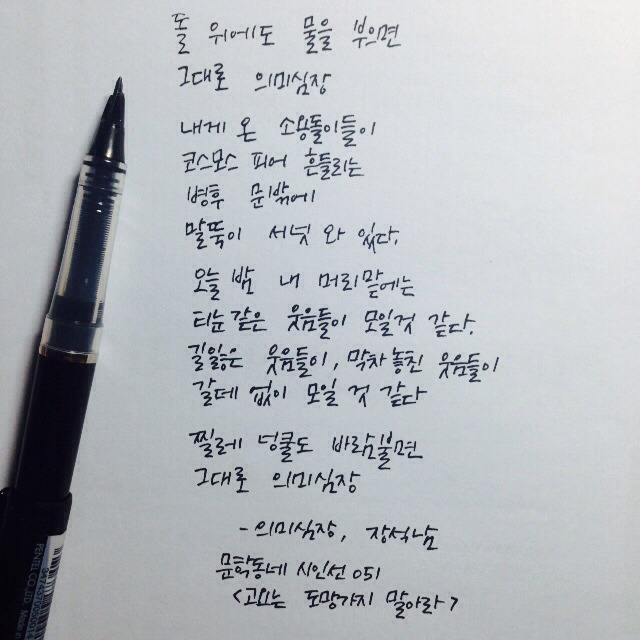 돌 위에도 물을 부으면
그대로 의미심장
내게 온 소용돌이들이
코스모스 피어 흔들리는
병후 문밖에
말뚝이 서넛 와 있다.
오늘 밤 내 머리맡에는
티눈같은 웃음들이 모일것 같다.
길잃은 웃음들이, 막차 놓친 웃음들이
갈데 없이 모일 것 같다
찔레 넝쿨도 바람불면
그대로 의미심장
- 의미심장, 장석남
문학동네 시인선 051
<고요는 도망가지 말아라>
PENTEL CO.,LTD.